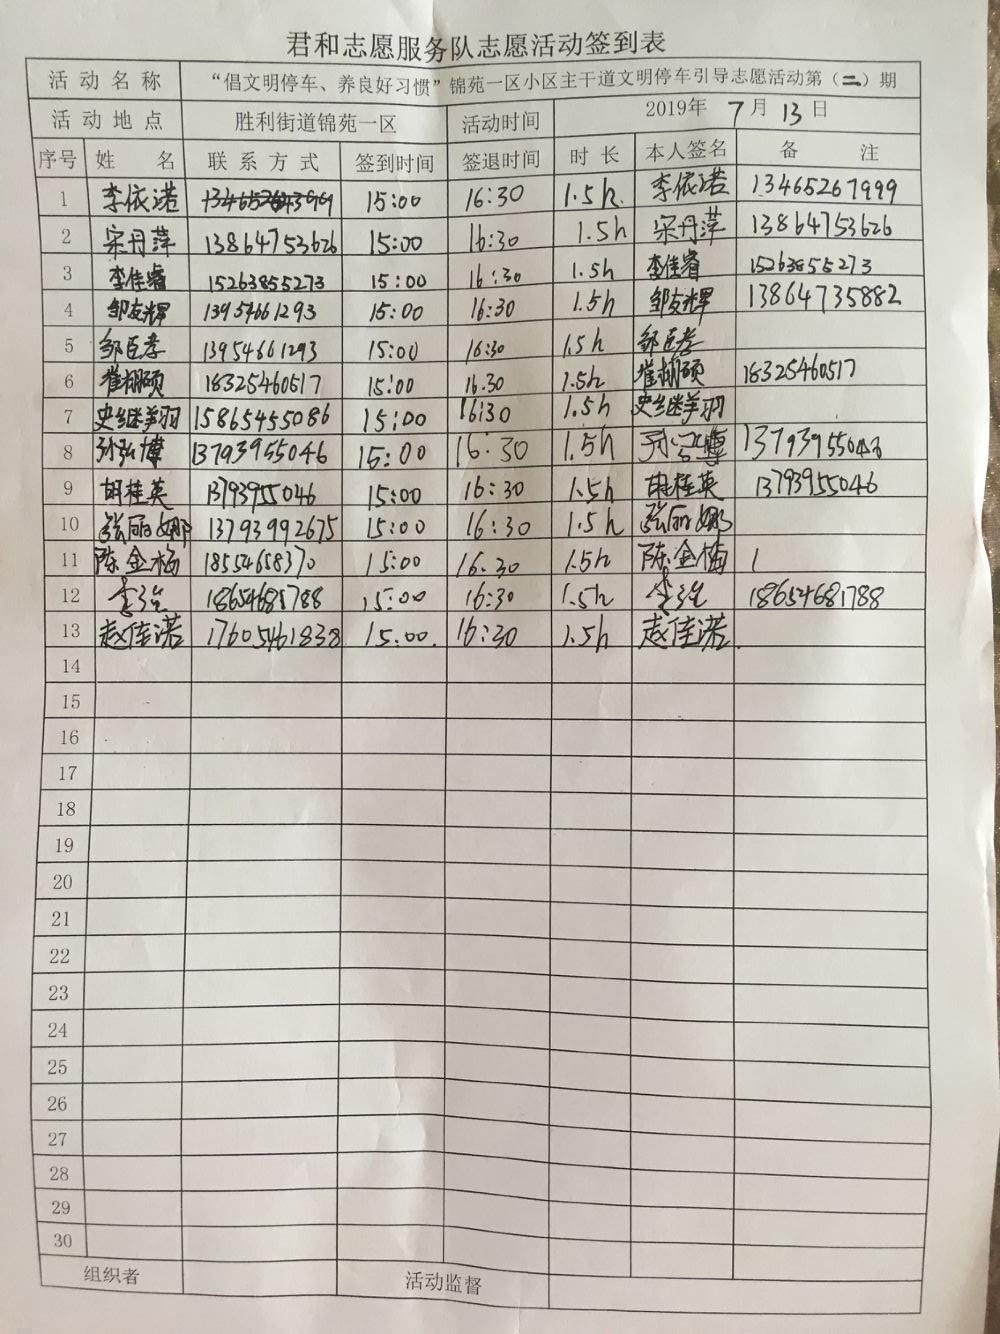 君和志愿服务队志愿活动签到表
活动名称 “倡文明停车、养良好习惯”锦苑一区小区主干道文明停车引导志愿活动第（二）期
活动地点 胜利街道锦苑一区 活动时间 2019年 7月 13日
序号 姓名 联系方式 签到时间 签退时间 时长 本人签名 备注
1 李依诺 15:00 16:30 1.5h 李依诺 13465267999
2 宋丹萍 13864753626 15:00 16:30 1.5h 宋丹萍 13864753626
3 李佳睿 15263855273 15:00 16:30 1.5h 李佳睿 15263855273
4 邹友辉 13954661293 15:00 16:30 1.5h 邹友辉 13864735882
5 邹臣孝 13954661293 15:00 16:30 1.5h 邹臣孝
6 崔栅硕 18325460517 15:00 16.30 1.5h 崔栅硕 18325460517
7 史继羊羽 15865455086 15:00 16:30 1.5h 史继羊羽
8 孙弘博 13793955046 15:00 16:30 1.5h 13793955046
9 胡桂英 13793955046 15:00 16:30 1.5h 胡桂英 13793955046
10 张丽娜 13793992675 15:00 16:30 1.5h 张丽娜
11 陈金梅 18554658370 15:00 16.30 1.5h 陈金梅
12 李强 18654681788 15:00 16:30 1.5h 李强 18654681788
13 赵佳诺 17605461838 15:00 16:30 1.5h 赵佳诺
14
15
16
17
18
19
20
21
22
23
24
25
26
27
28
29
30
组织者 活动监督